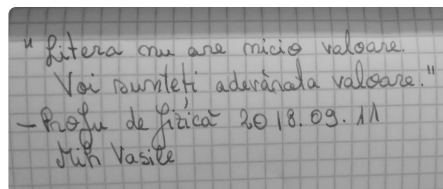 "Litera nu are nicio valoare.
Voi sunteți adevărata valoare."
- Profu de fizică 2018.09.11
Vasile